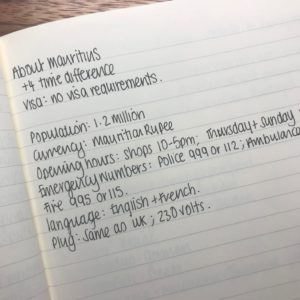 About Mauritius
+4 time difference
Visa: no visa requirements.
Population: 1.2 million
Currency: Mauritian Rupee
Opening hours: Shops 10-5pm. Thursday + Sunday
Emergency Numbers: Police 999 or 112; Ambulance
Fire 995 or 115.
Language: English + French.
Plug: Same as UK; 230 volts.